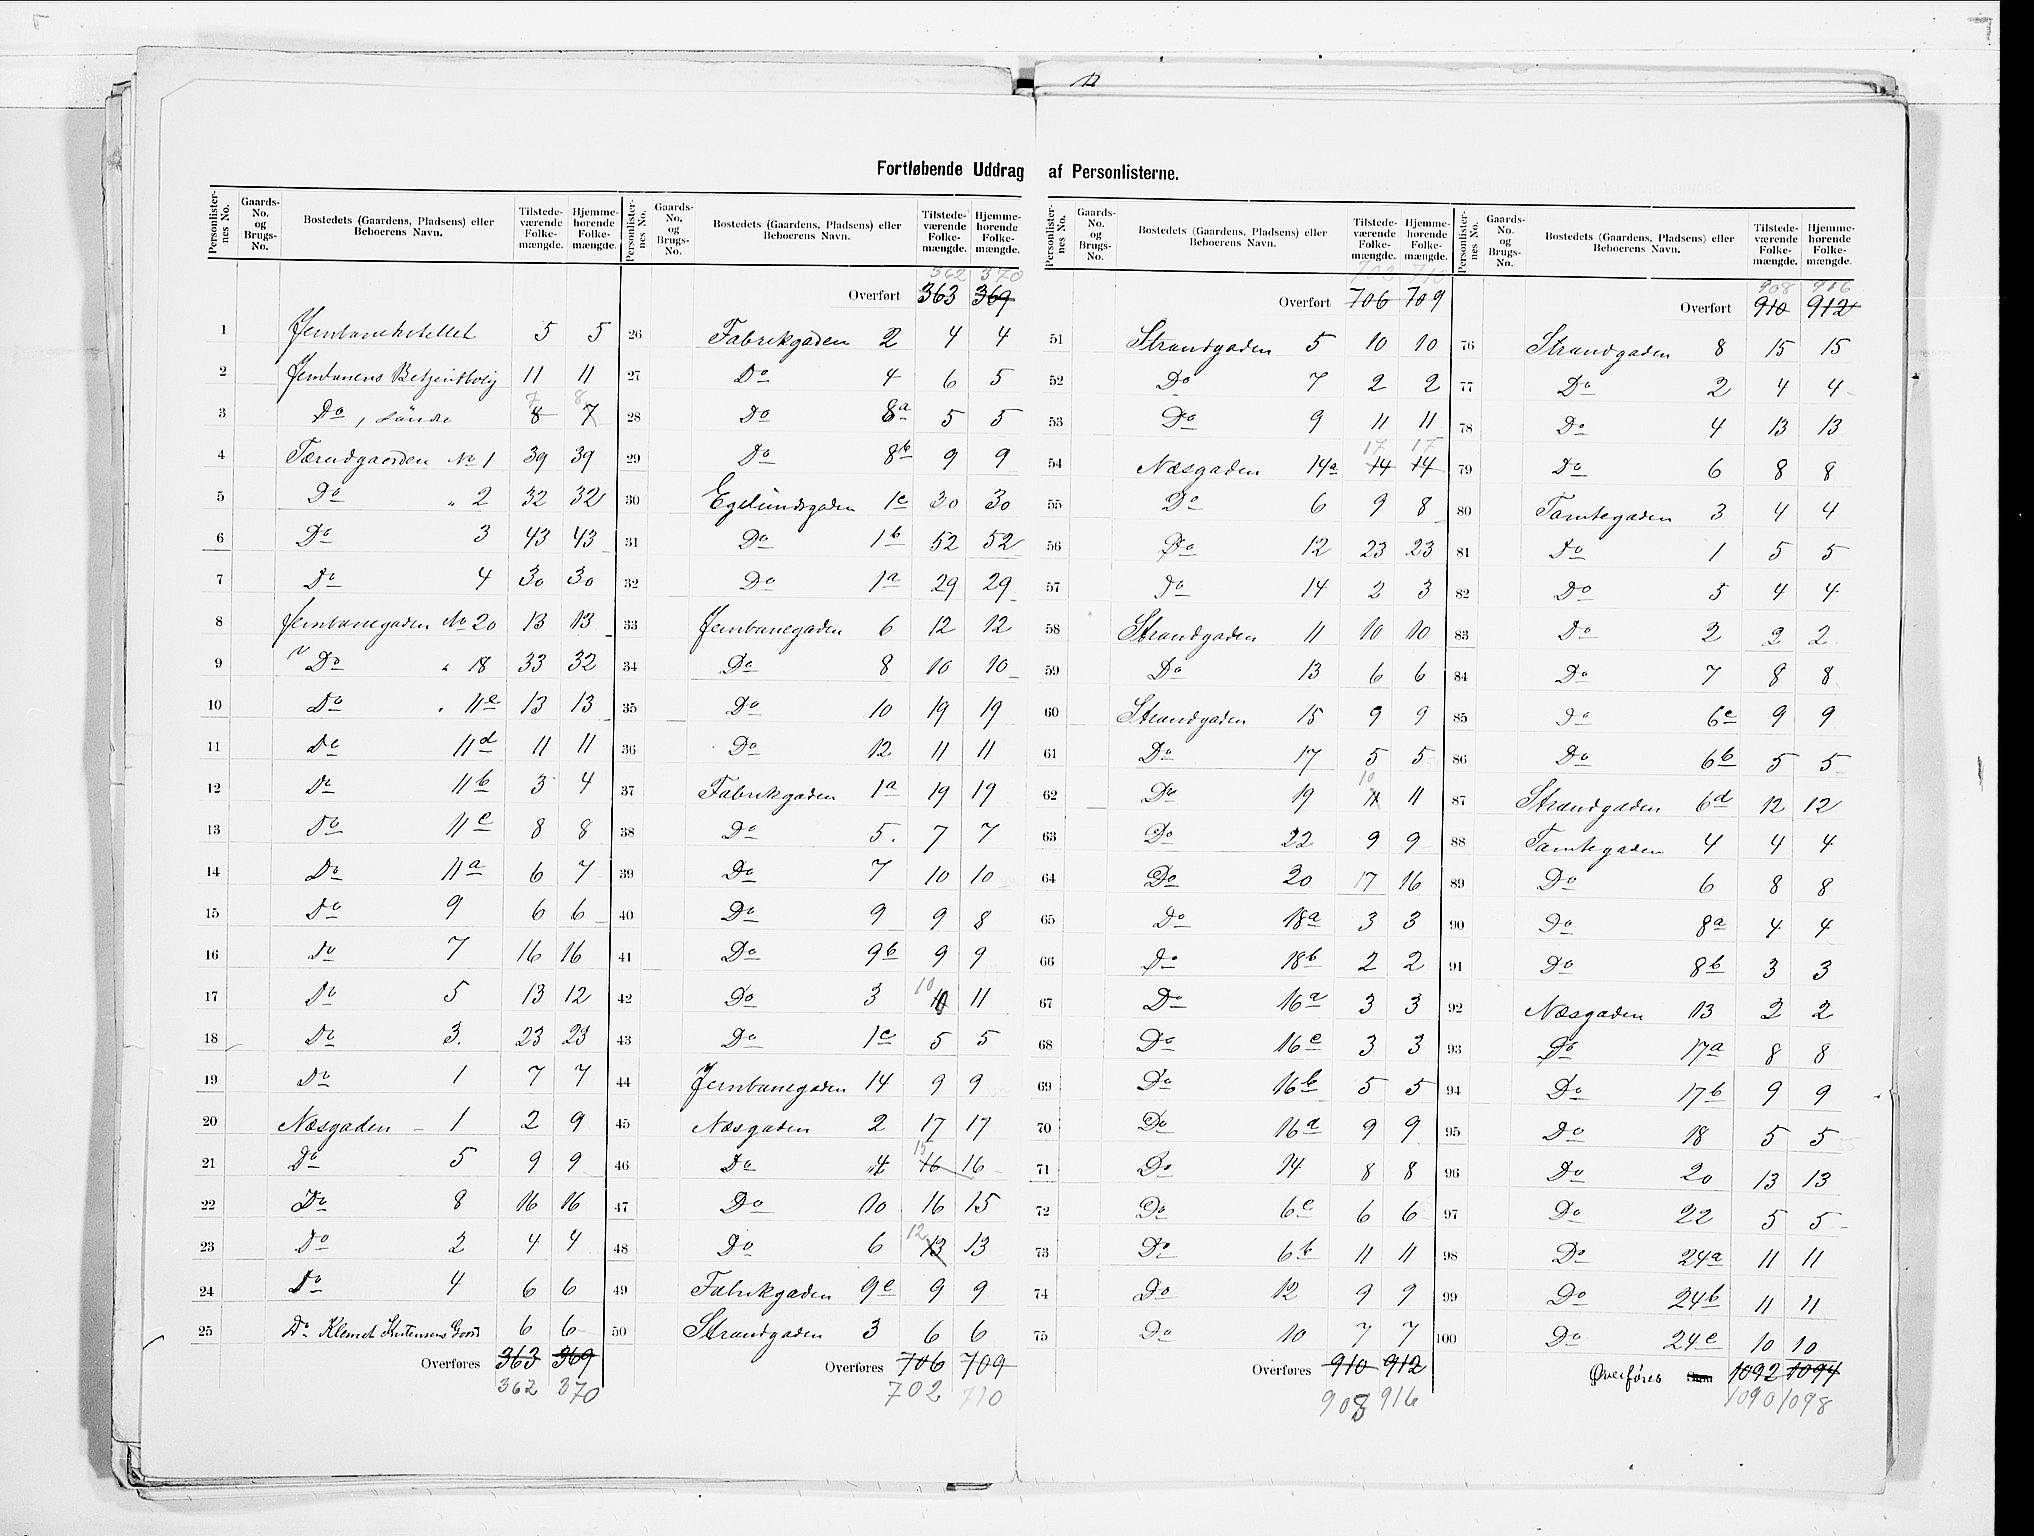 Fortløbende Uddrag af Personlisterne.
Personlisternes No. | Gaards-No. og Brugs-No. | Bostedets (Gaardens, Pladsens) eller Beboerens Navn. | Tilstedeværende Folkemængde. | Hjemmehørende Folkemængde.
1 Jernbanehotellet 5 5
2 Jernbanens Betjentbolig 11 11
3 Do, søndre 8 7 7 8
4 Tærudgaarden No 1 39 39
5 Do " 2 32 32
6 Do 3 43 43
7 Do 4 30 30
8 Jernbanegaden No 20 13 13
9 Do " 18 33 32
10 Do " 11e 13 13
11 Do 11d 11 11
12 Do 11b 3 4
13 Do 11c 8 8
14 Do 11a 6 7
15 Do 9 6 6
16 Do 7 16 16
17 Do 5 13 12
18 Do 3. 23 23
19 Do 1 7 7
20 Næsgaden – 1 2 9
21 Do 5 9 9
22 Do 8 16 16
23 Do 2 4 4
24 Do 4 6 6
25 Do Klemet Kristensens Gaard 6 6
Overføres 363 369
362 370
Personlisternes No. | Gaards-No. og Brugs-No. | Bostedets (Gaardens, Pladsens) eller Beboerens Navn. | Tilstedeværende Folkemængde. | Hjemmehørende Folkemængde.
362 370
Overført 363 369
26 Fabrikgaden 2 4 4
27 Do 4 6 5
28 Do 8a 5 5
29 Do 8b 9 9
30 Egelundsgaden 1c 30 30
31 Do 1b 52 52
32 Do 1a 29 29
33 Jernbanegaden 6 12 12
34 Do 8 10 10
35 Do 10 19 19
36 Do 12 11 11
37 Fabrikgaden 1a 19 19
38 Do 5. 7 7
39 Do 7 10 10
40 Do 9 9 8
41 Do 9b 9 9
42 Do 3 10 11
43 Do 1c 5 5
44 Jernbanegaden 14 9 9
45 Næsgaden 2 17 17
46 Do 4 15 16 16
47 Do 10 16 15
48 Do 6 12 13 13
49 Fabrikgaden 9c 9 9
50 Strandgaden 3 6 6
Overføres 706 709
702 710
Personlisternes No. | Gaards-No. og Brugs-No. | Bostedets (Gaardens, Pladsens) eller Beboerens Navn. | Tilstedeværende Folkemængde. | Hjemmehørende Folkemængde.
702 710
Overført 706 709
51 Strandgaden 5 10 10
52 Do 7 2 2
53 Do 9 11 11
54 Næsgaden 14a 17 17 14 14
55 Do 6 9 8
56 Do 12 23 23
57 Do 14 2 3
58 Strandgaden 11 10 10
59 Do 13 6 6
60 Strandgaden 15 9 9
61 Do 17 5 5
62 Do 19 10 11 11
63 Do 22 9 9
64 Do 20 17 16
65 Do 18a 3 3
66 Do 18b 2 2
67 Do 16a 3 3
68 Do 16c 3 3
69 Do 16b 5 5
70 Do 16d 9 9
71 Do 14 8 8
72 Do 6c 6 6
73 Do 6b 11 11
74 Do 12 9 9
75 Do 10 7 7
Overføres 910 912
908 916
Personlisternes No. | Gaards-No. og Brugs-No. | Bostedets (Gaardens, Pladsens) eller Beboerens Navn. | Tilstedeværende Folkemængde. | Hjemmehørende Folkemængde.
908 916
Overført 910 912
76 Strandgaden 8 15 15
77 Do 2 4 4
78 Do 4 13 13
79 Do 6 8 8
80 Tomtegaden 3 4 4
81 Do 1 5 5
82 Do 5 4 4
83 Do 2 2 2
84 Do 7 8 8
85 Do 6c 9 9
86 Do 6b 5 5
87 Strandgaden 6d 12 12
88 Tomtegaden 4 4 4
89 Do 6 8 8
90 Do 8a 4 4
91 Do 8b 3 3
92 Næsgaden 13 2 2
93 Do 17a 8 8
94 Do 17b 9 9
95 Do 18 5 5
96 Do 20 13 13
97 Do 22 5 5
98 Do 24a 11 11
99 Do 24b 11 11
100 Do 24c 10 10
Overføres 1092 1094
1090 1098